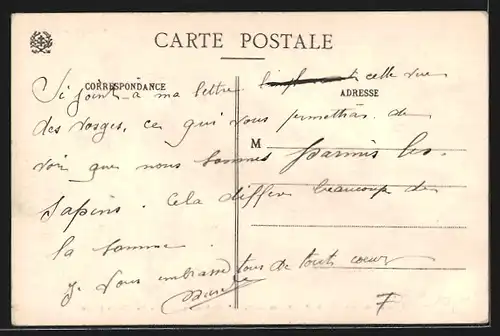 CARTE POSTALE
CORRESPONDANCE
ADRESSE
M
Ci joint à ma lettre cette vue
des vosges, ce qui vous permettras de
voir que nous sommes parmis les
sapins. Cela differe beaucoup de
la Somme.
Je vous embrasse tous de tout coeur